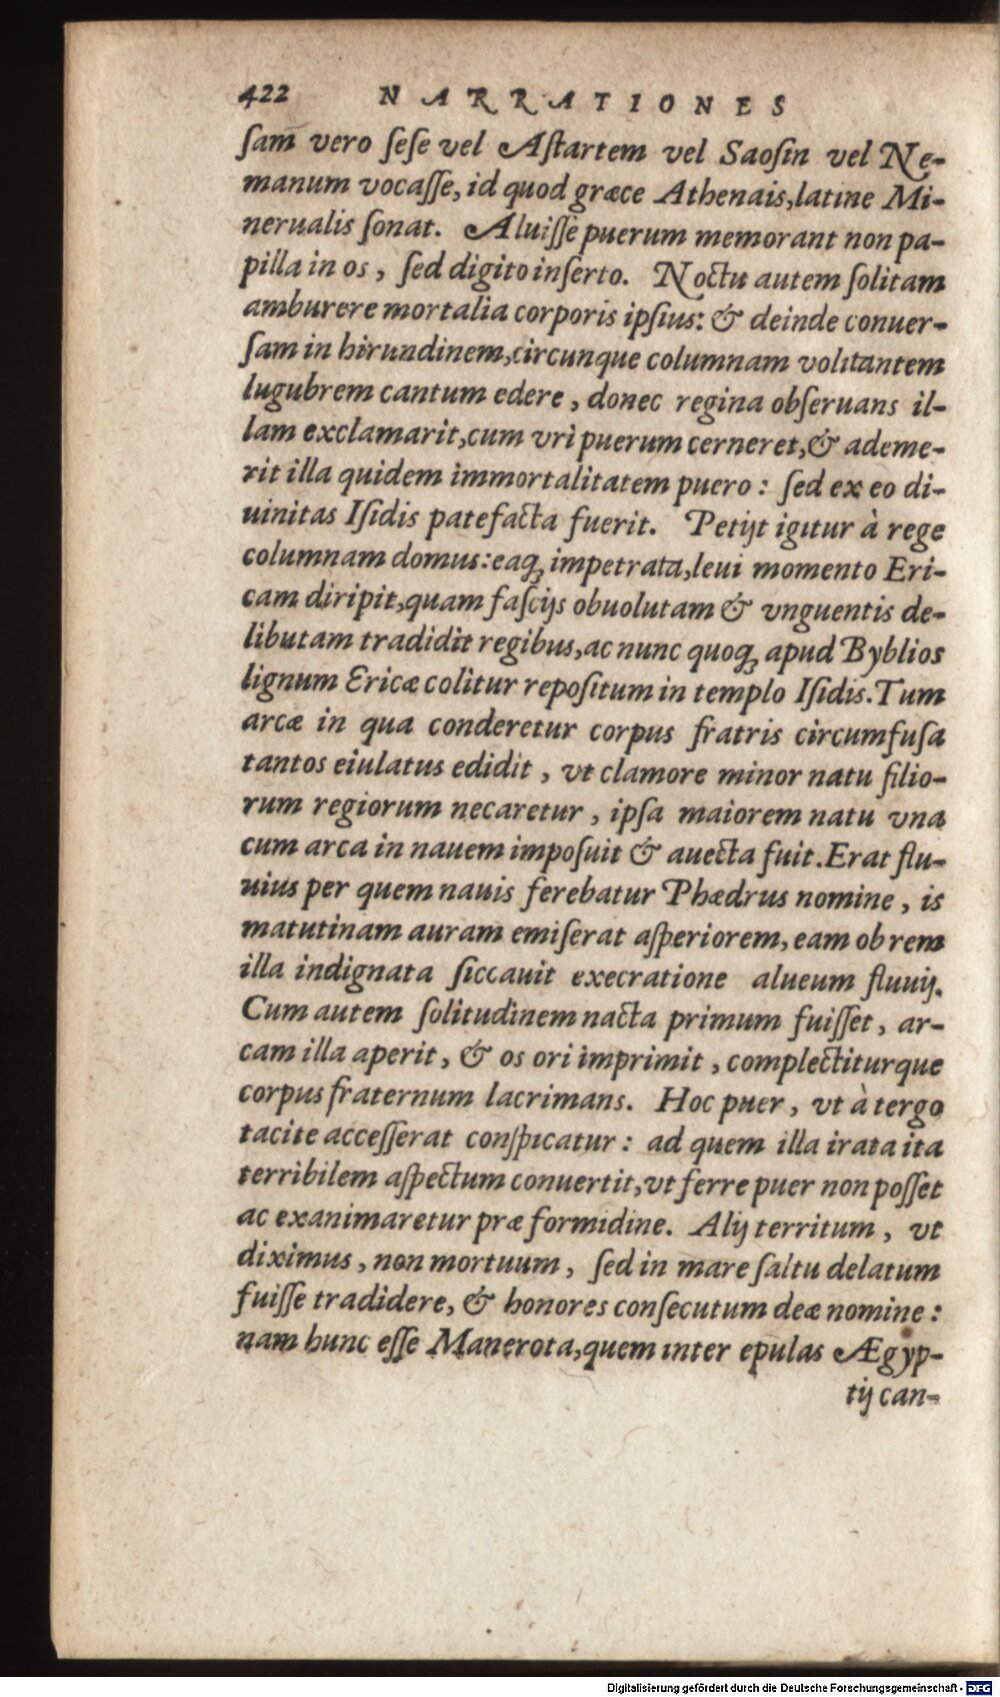 422 NARRATIONES
ſam vero ſeſe vel Aſtartem vel Saoſin vel Ne-
manum vocaſſe, id quod græce Athenais, latine Mi-
nerualis ſonat. Aluiſſe puerum memorant non pa-
pilla in os, ſed digito inſerto. Noctu autem ſolitam
amburere mortalia corporis ipſius: & deinde conuer-
ſam in hirundinem, circunque columnam volitantem
lugubrem cantum edere, donec regina obſeruans il-
lam exclamarit, cum vri puerum cerneret, & ademe-
rit illa quidem immortalitatem puero: ſed ex eo di-
uinitas Iſidis patefacta fuerit. Petijt igitur à rege
columnam domus: eaq; impetrata, leui momento Eri-
cam diripit, quam faſcijs obuolutam & vnguentis de-
libutam tradidit regibus, ac nunc quoq; apud Byblios
lignum Ericæ colitur repoſitum in templo Iſidis. Tum
arcæ in qua conderetur corpus fratris circumfuſa
tantos eiulatus edidit, vt clamore minor natu filio-
rum regiorum necaretur, ipſa maiorem natu vna
cum arca in nauem impoſuit & auecta fuit. Erat flu-
uius per quem nauis ferebatur Phædrus nomine, is
matutinam auram emiſerat aſperiorem, eam ob rem
illa indignata ſiccauit execratione alueum fluuij.
Cum autem ſolitudinem nacta primum fuiſſet, ar-
cam illa aperit, & os ori imprimit, complectiturque
corpus fraternum lacrimans. Hoc puer, vt à tergo
tacite acceſſerat conſpicatur: ad quem illa irata ita
terribilem aſpectum conuertit, vt ferre puer non poſſet
ac exanimaretur præ formidine. Alij territum, vt
diximus, non mortuum, ſed in mare ſaltu delatum
fuiſſe tradidere, & honores conſecutum deæ nomine:
nam hunc eſſe Manerota, quem inter epulas Ægyp-
tij can-
Digitalisierung gefördert durch die Deutsche Forschungsgemeinschaft - DFG